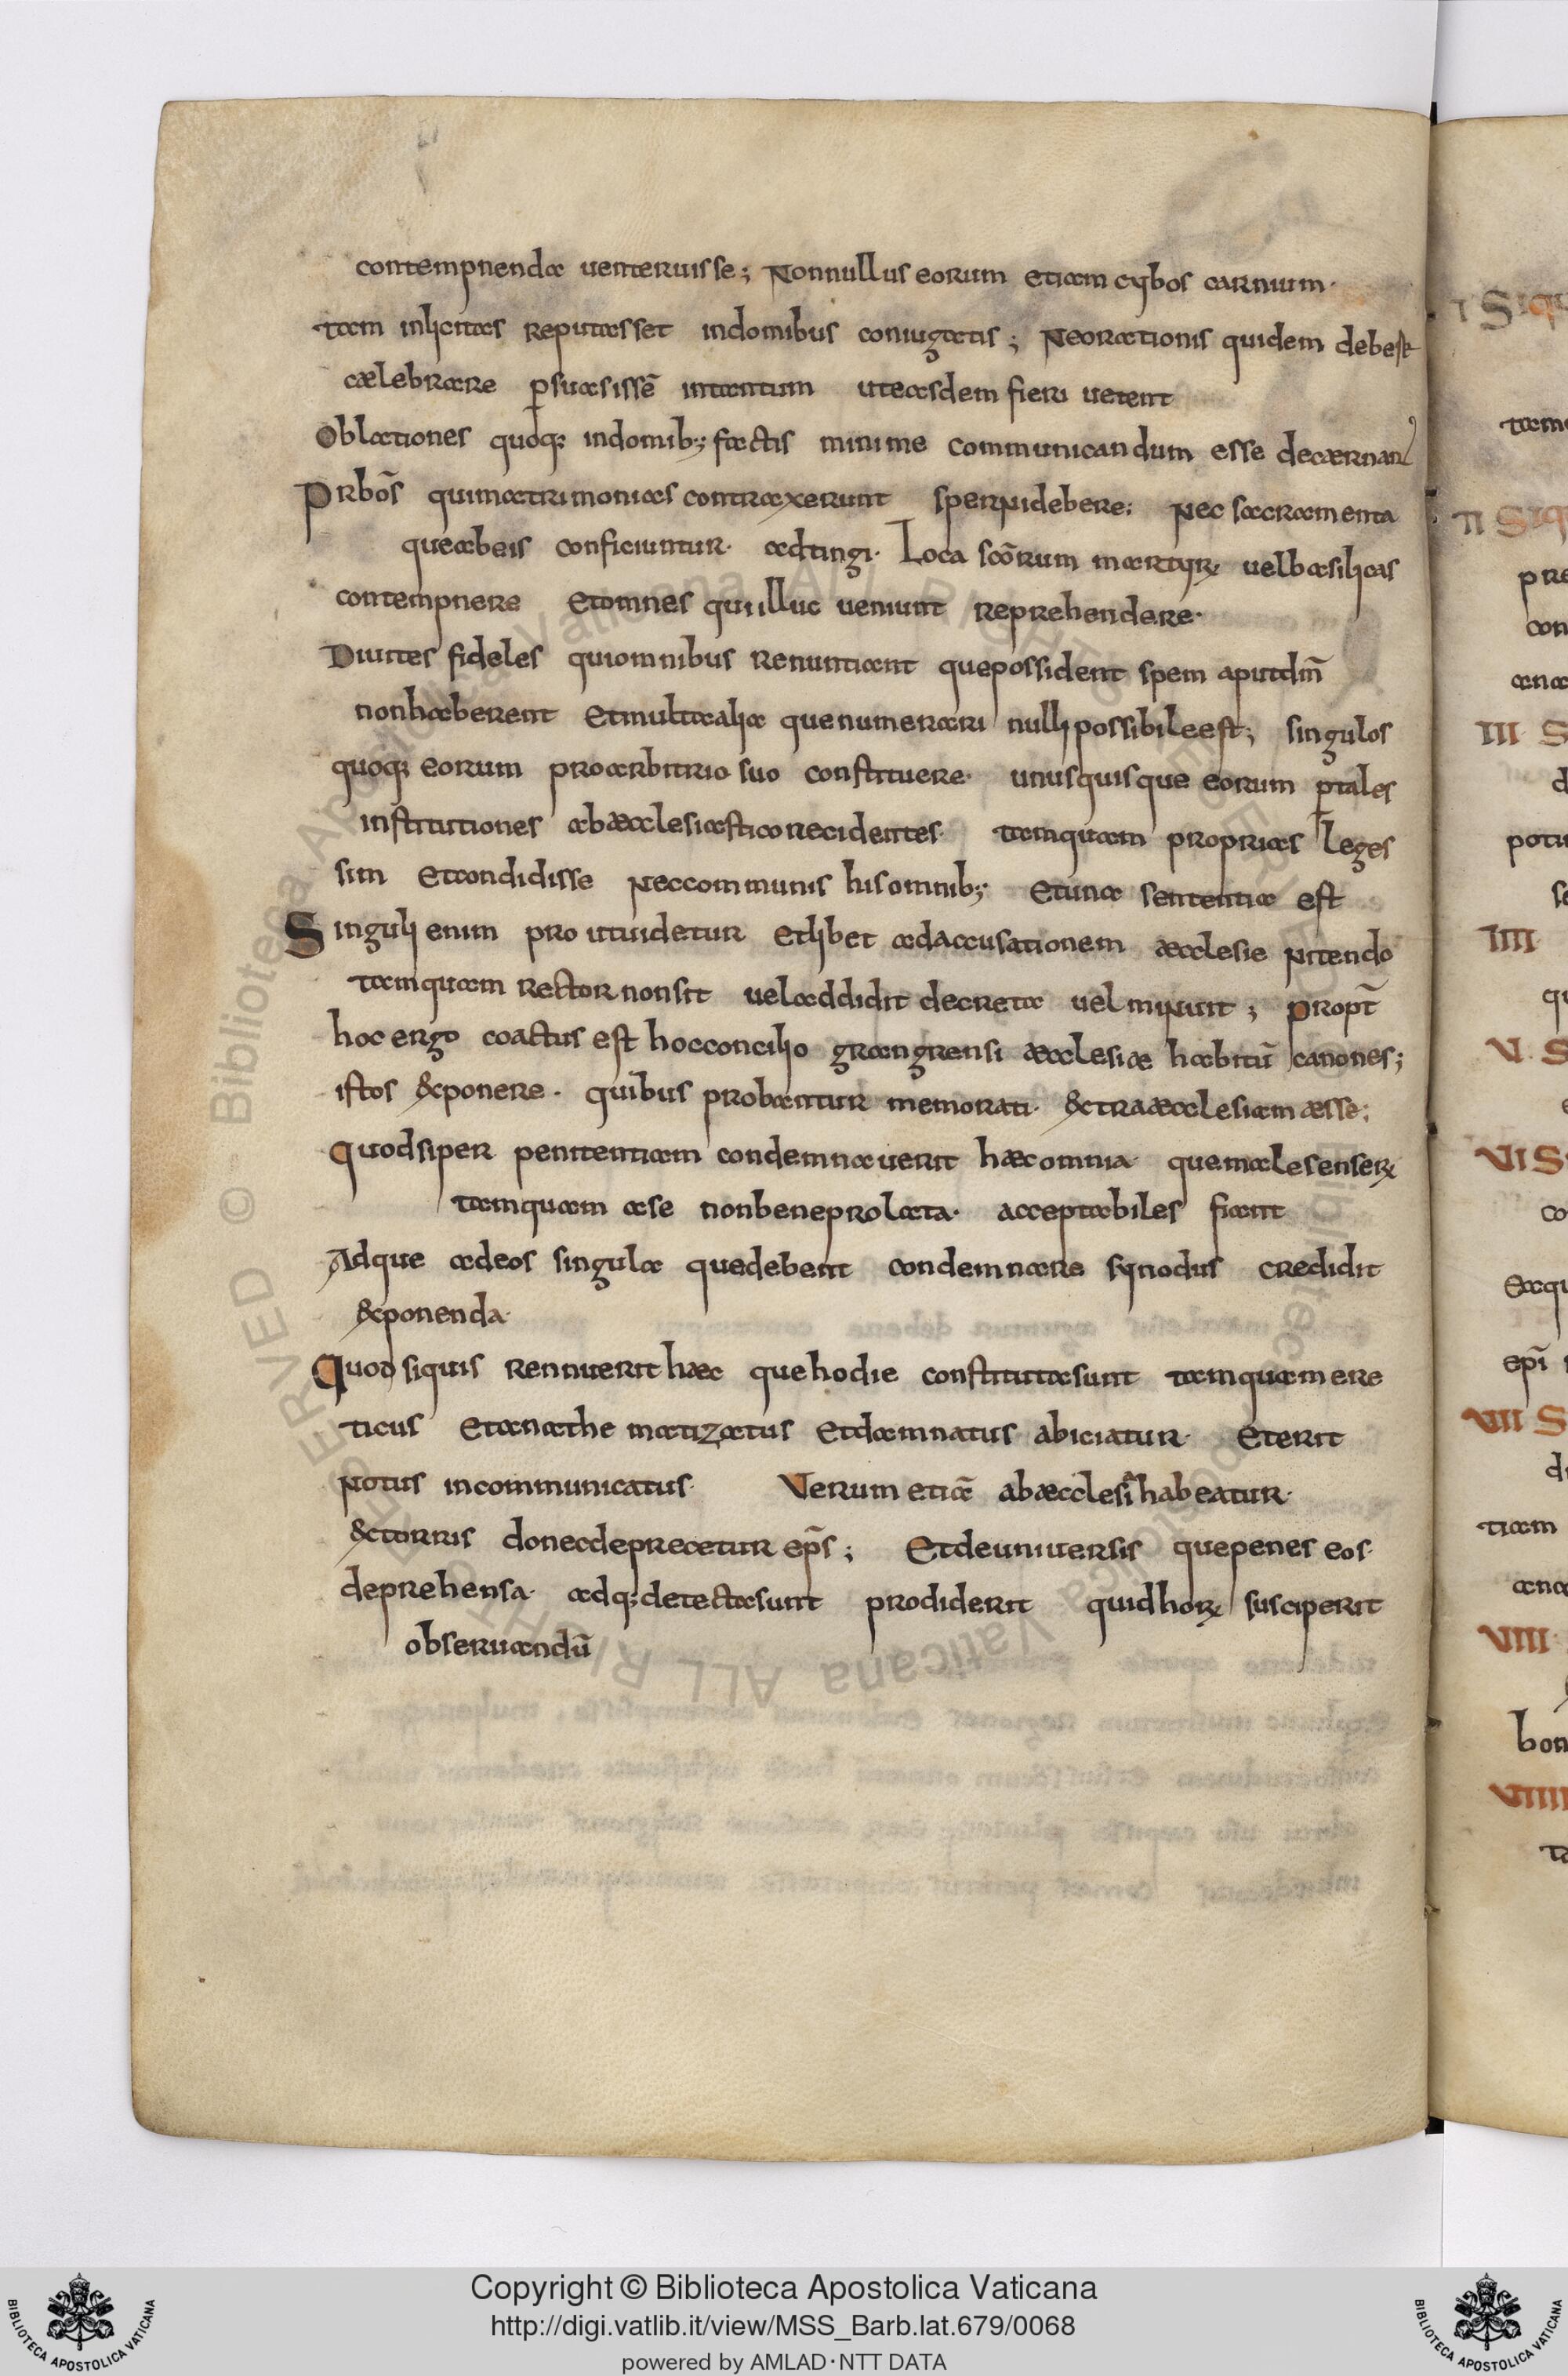 contempnenda uenteruisse; Nonnullus eorum etiam cybos carnium·
tam inlicitas reputasset indomibus coniugatis; Neorationis quidem debeſt
cælebrare p̱suasissē intantum uteasdem fieri uetent
Oblationes quoq; indomib; factis minime communicandum esse decærnant
Prbōs quimatrimonias contraxerunt spernidebere; Nec sacramenta
queabeis conficiuntur· adtingi· Loca scōrum martyrꝝ uelbasilicas
contempnere Etomnes quiilluc ueniunt reprehendere·
Diuites fideles quiomnibus renuntiant quepossident spem aputdm̄
nonhaberent Etmultaalia quenumerari nulli possibileest; singulos
quoq; eorum proarbitrio suo constituere· unusquisque eorum p̱tales
institutiones abæcclesiasticorecidentes· tamquam proprias leges
sim Etcondidisse Neccommunis hisomnib; Etuna sententia est
Singuli enim pro utuidetur Etlibet adaccusationem æcclesie Nitendo
tamquam rector nonsit ueladdidit decreta uel minuit; propt̄
hoc ergo coactus est hocconcilio grangrensi æcclesiae habitū canones;
istos &ponere· quibus probantur memorati· &traæcclesiam æsse;
Quodsiper penitentiam condemnauerit hæcomnia· quemalesenserꝝ
tamquam ase nonbeneprolata· acceptabiles fiant
Adque adeos singula quedebent condemnare synodus credidit
&ponenda·
Quod siquis rennuerit hæc quehodie constitutasunt tamquamere
ticus Etanathe matizatus Etdamnatus abiciatur· Eterit
Notus incommunicatus· Verum etiā abæcclesi habeatur·
&torris donecdeprecetur ep̄s; Etdeuniuersis quepenes eos·
deprehensa· adq;detectasunt prodiderit quidhorꝝ susciperit
obseruandū
Copyright © Biblioteca Apostolica Vaticana
http://digi.vatlib.it/view/MSS_Barb.lat.679/0068
powered by AMLAD·NTT DATA